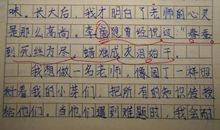 咪。长大后，我才明白了老师的心灵
是那么高尚。李商隐曾经说过"春蚕
到死丝方尽，蜡炬成灰泪始干。
我想做一名老师，像园丁一样用
对着我的小芽们，把所有的知识传授
给他们。当他们遇到难题时，我会